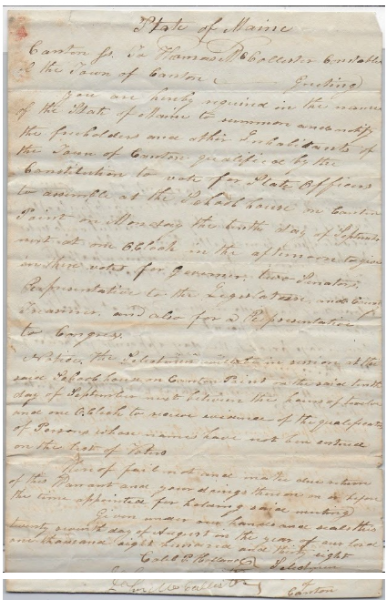 State of Maine
Canton ss. To Thomas McCollister Constable
of the Town of Canton Greeting
You are hereby required in the name
of the State of Maine to summon and notify
the freeholders and other Inhabitants of
the Town of Canton qualified by the
Constitution to vote for State Officers
to assemble at the School house in Canton
Point on Monday the tenth day of Septemb
next at one OClock in the afternoon to give
in their votes for Governor, two Senators,
Representative to the Legislature, and County
Treasurer and also for a Representative
to Congress
Notice, the Selectmen will be in session at the
said School house on Canton Point on the said tenth
day of September next between the hours of twelve
and one OClock to receive evidence of the qualification
of Persons whose names have not been entered
on the list of Voters
Hereof fail not and make due return
of this Warrant and your doings thereon on or before
the time appointed for holding said meeting
Given under our hands and seals this
twenty day of August in the year of our Lord
one thousand eight hundred and thirty eight
Selectmen
of
Canton